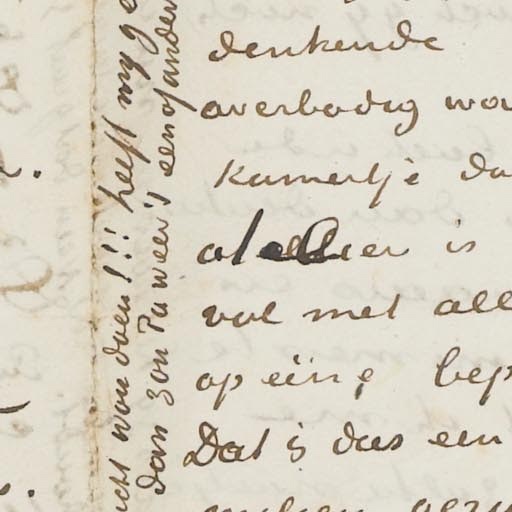 denkende
overbodig wor
kamertje da
atelier is
vol met all
op eene bep
Dat is dus een
icht wou doen!!! heeft my ge
dan zou Pa weer's een of ander